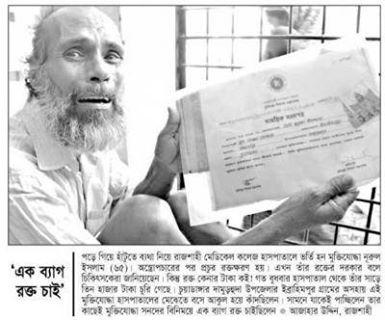 সাময়িক সনদপত্র
পড়ে গিয়ে হাঁটুতে ব্যথা নিয়ে রাজশাহী মেডিকেল কলেজ হাসপাতালে ভর্তি হন মুক্তিযোদ্ধা নুরুল
ইসলাম (৬৫)। অস্ত্রোপচারের পর প্রচুর রক্তক্ষরণ হয়। এখন তাঁর রক্তের দরকার বলে
চিকিৎসকেরা জানিয়েছেন। কিন্তু রক্ত কেনার টাকা কই! গত বুধবার হাসপাতাল থেকে তাঁর সাড়ে
তিন হাজার টাকা চুরি গেছে। চুয়াডাঙ্গার দামুড়হুদা উপজেলার ইব্রাহিমপুর গ্রামের অসহায় এই
মুক্তিযোদ্ধা হাসপাতালের মেঝেতে বসে আকুল হয়ে কাঁদছিলেন। সামনে যাকেই পাচ্ছিলেন তার
কাছেই মুক্তিযোদ্ধা সনদের বিনিময়ে এক ব্যাগ রক্ত চাইছিলেন ○ আজাহার উদ্দিন, রাজশাহী
'এক ব্যাগ
রক্ত চাই'